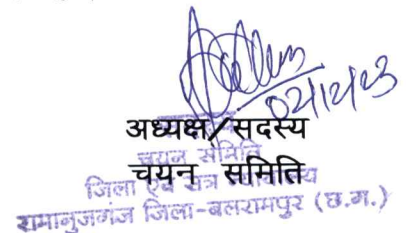 02/12/23
अध्यक्ष/सदस्य
चयन समिति
चयन समिति
जिला एवं सत्र न्यायालय
रामानुजगंज जिला-बलरामपुर (छ.ग.)